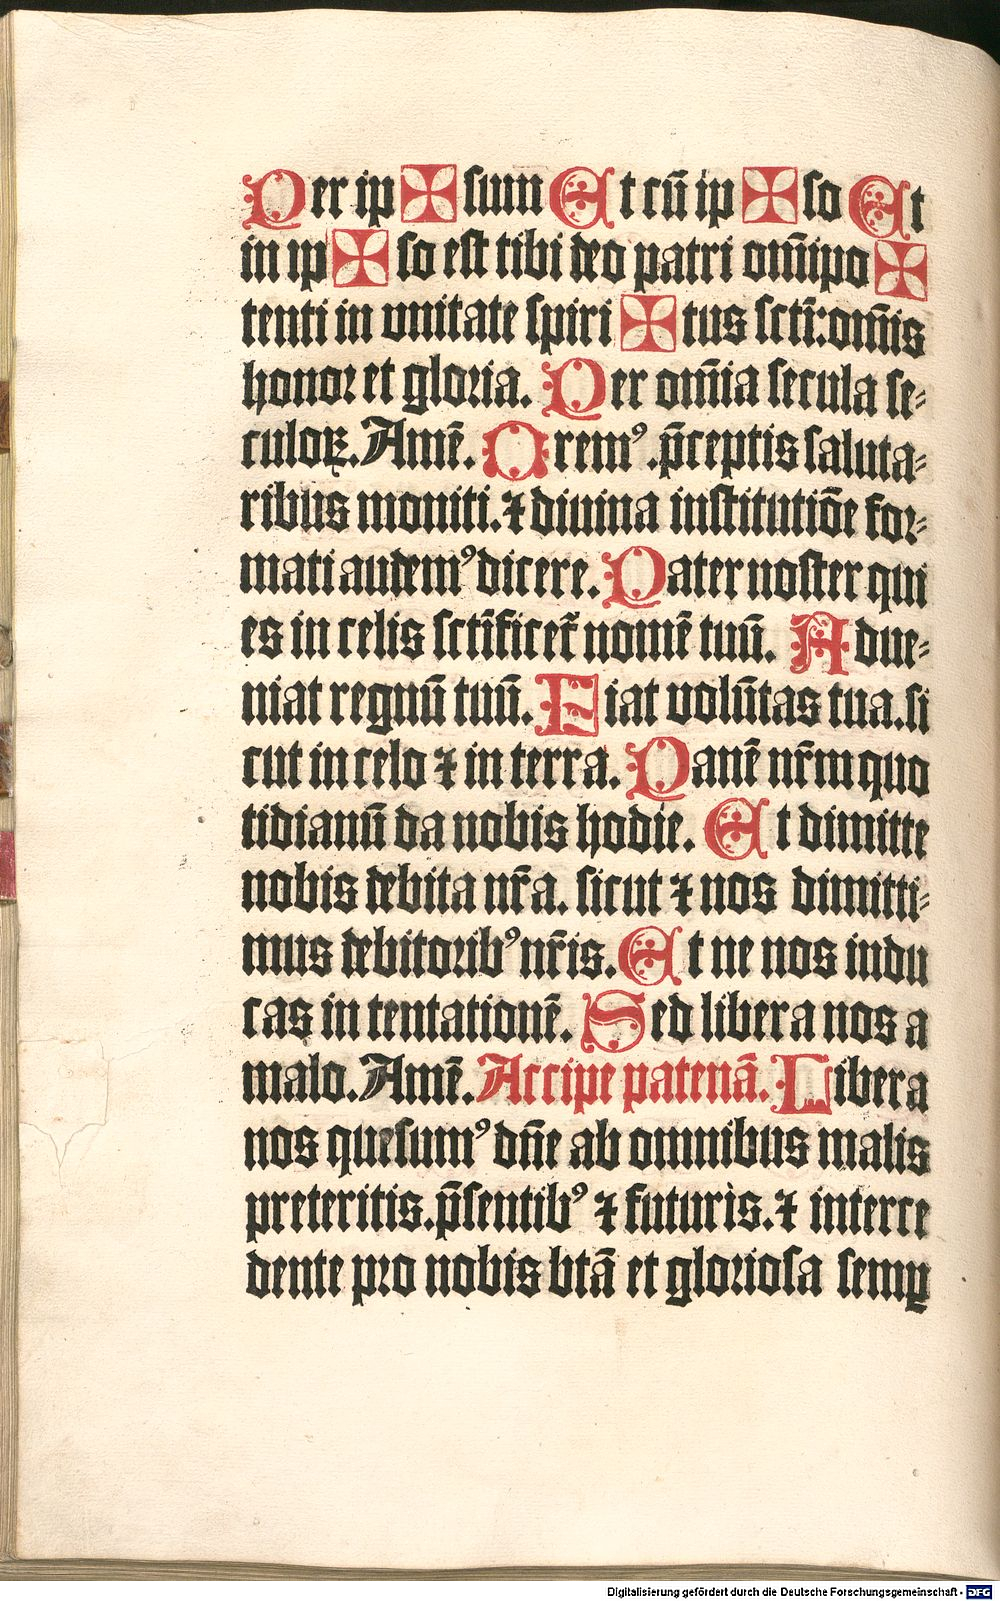 Per ip✠sum Et cū ip✠so Et
in ip✠so est tibi deo patri om̄ipo✠
tenti in vnitate spiri✠tus sctī:om̄is
honor et gloria. Per om̄ia secula se⸗
culoꝝ. Amē. Oremꝰ .p̄ceptis saluta⸗
ribus moniti.⁊ diuina institutiōe for⸗
mati audemꝰ dicere. Pater noster qui
es in celis sctīficet᷑ nomē tuū. Adue⸗
niat regnū tuū. Fiat volūtas tua.si
cut in celo ⁊ in terra. Panē nr̄m quo
tidianū da nobis hodie. Et dimitte
nobis debita nr̄a. sicut ⁊ nos dimitti⸗
mus debitoribꝰ nr̄is. Et ne nos indu
cas in tentationē. Sed libera nos a
malo. Amē. Accipe patenā. Libera
nos quesumꝰ dn̄e ab omnibus malis
preteritis.p̄sentibꝰ ⁊ futuris.⁊ interce
dente pro nobis btā et gloriosa semꝑ
Digitalisierung gefördert durch die Deutsche Forschungsgemeinschaft - DFG